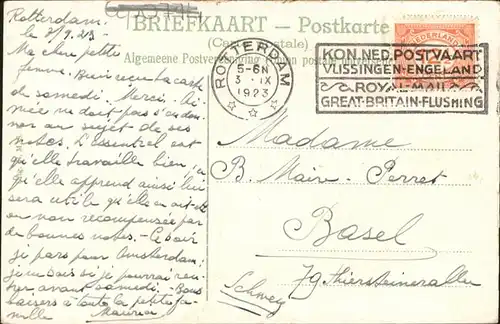 BRIEFKAART — Postkarte
Algemeene Postvereeniging
ROTTERDAM
5-6N
3 · IX
1923
NEDERLAND
KON. NED. POSTVAART
VLISSINGEN-ENGELAND
ROYAL-MAIL
GREAT-BRITAIN-FLUSHING
Rotterdam.
le 3/9.23.
Ma chère petite
femme. Bien reçu ta carte
de samedi. Merci.
née ne doit pas s'en don-
ner au sujet de ses
notes. L'essentiel est
qu'elle travaille bien,
qu'elle apprend ainsi lui
sera utile qu'elle en ait été
ou non récompensée par
de bonnes notes. — Ce soir
je pars pour Amsterdam;
je ne sais si je pourrai ren-
trer avant samedi. Bons
baisers à toute la petite fa-
mille Maurice
Madame
B. Maire-Perret
Basel
79 Thiersteinerallee
Schweiz